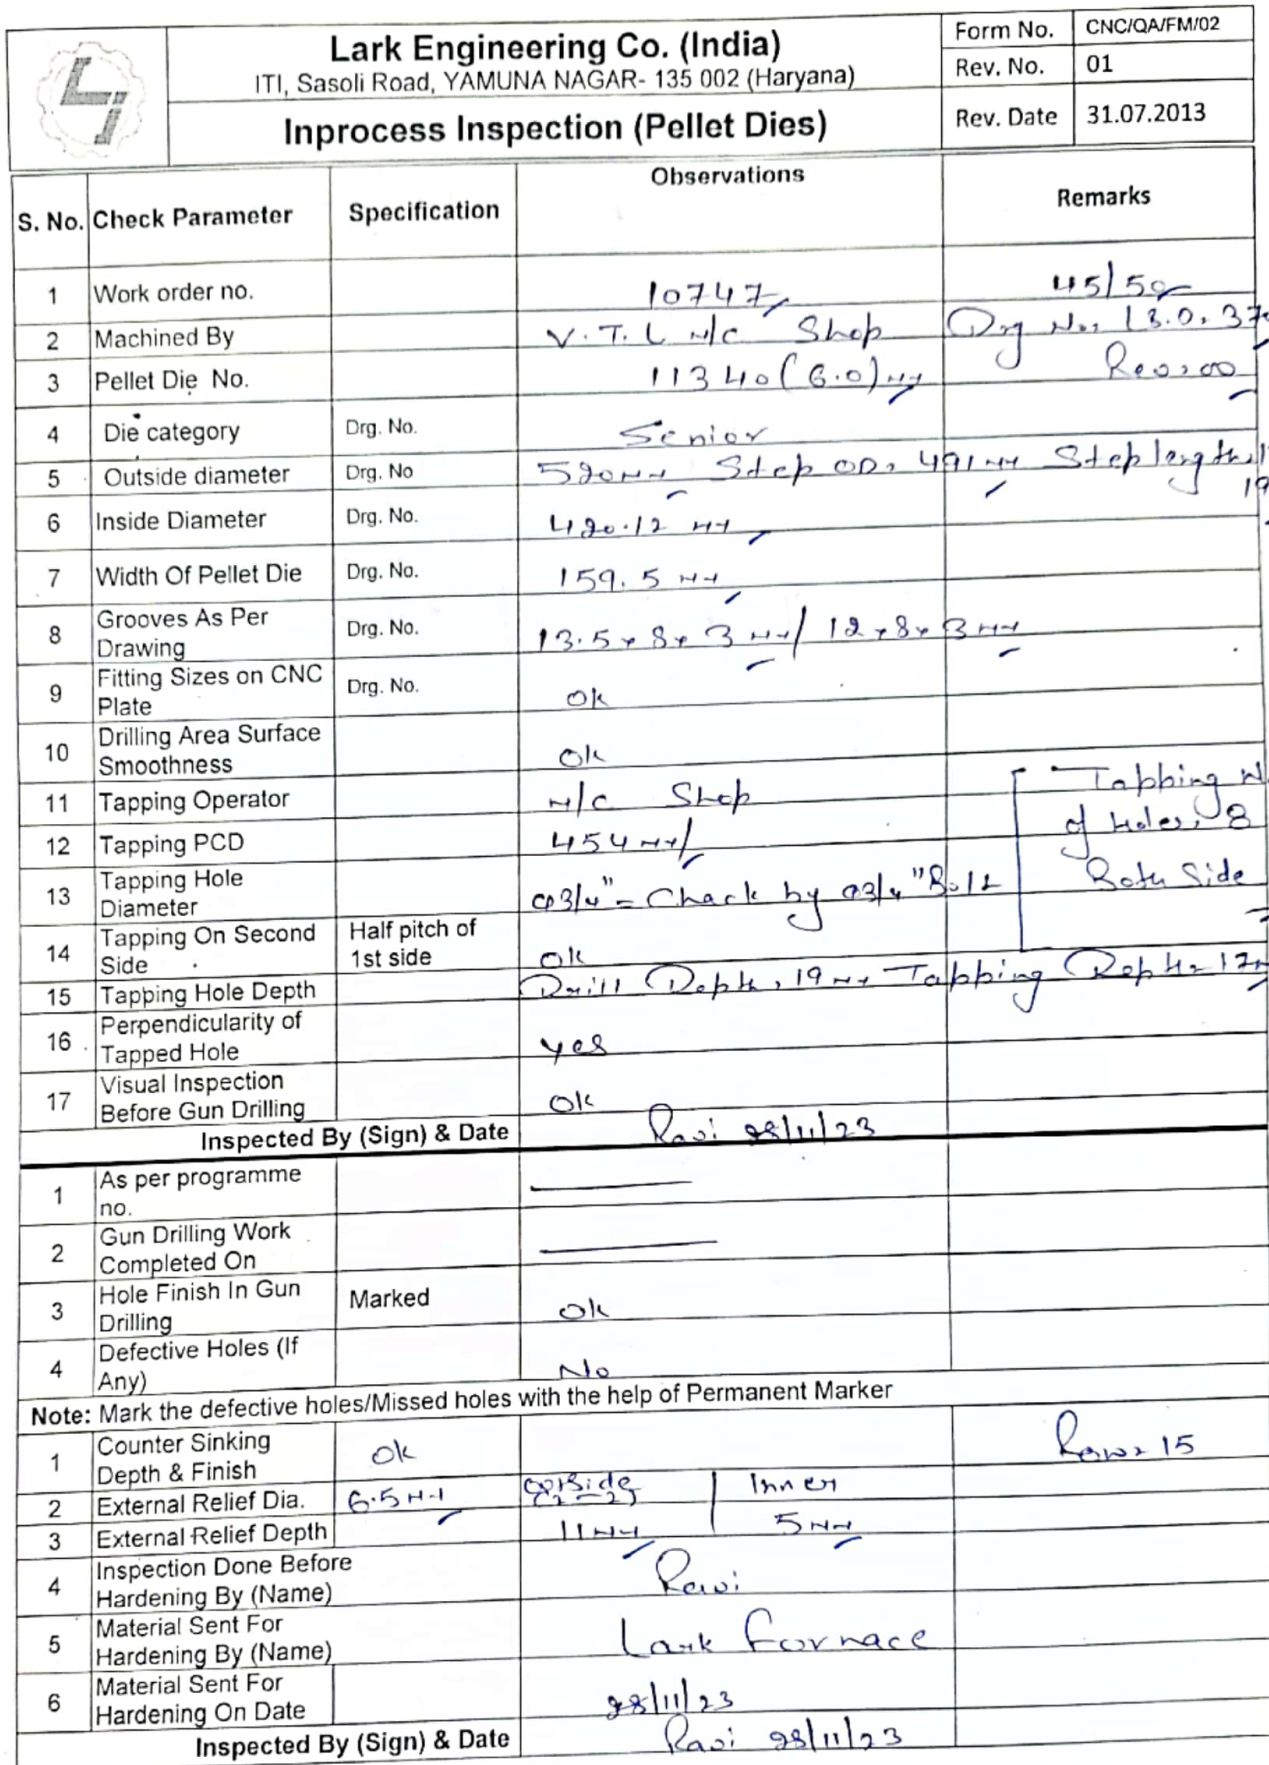 Lark Engineering Co. (India)
ITI, Sasoli Road, YAMUNA NAGAR- 135 002 (Haryana)
Inprocess Inspection (Pellet Dies)
Form No. CNC/QA/FM/02
Rev. No. 01
Rev. Date 31.07.2013
S. No. Check Parameter Specification Observations Remarks
1 Work order no. 10747 45/50
2 Machined By V.T.L M/C Shop Drg No. 13.0.37
3 Pellet Die No. 11340 (6.0) MM Rev. 00
4 Die category Drg. No. Senior
5 Outside diameter Drg. No 520 MM Step OD. 491 MM Step length
6 Inside Diameter Drg. No. 420.12 MM
7 Width Of Pellet Die Drg. No. 159.5 MM
8 Grooves As Per Drawing Drg. No. 13.5 x 8 x 3 MM / 12 x 8 x 3 MM
9 Fitting Sizes on CNC Plate Drg. No. Ok
10 Drilling Area Surface Smoothness Ok
11 Tapping Operator M/C Shop Tapping
12 Tapping PCD 454 MM of Holes, 8
13 Tapping Hole Diameter Ø3/4" = Chack by Ø3/4" Bolt Both Side
14 Tapping On Second Side Half pitch of 1st side Ok
15 Tapping Hole Depth Drill Depth, 19 MM Tapping Depth 17
16 Perpendicularity of Tapped Hole yes
17 Visual Inspection Before Gun Drilling Ok
Inspected By (Sign) & Date Ravi 28/11/23
1 As per programme no.
2 Gun Drilling Work Completed On
3 Hole Finish In Gun Drilling Marked Ok
4 Defective Holes (If Any) No
Note: Mark the defective holes/Missed holes with the help of Permanent Marker
1 Counter Sinking Depth & Finish Ok Row 15
2 External Relief Dia. 6.5 MM Inner
3 External Relief Depth 11 MM 5 MM
4 Inspection Done Before Hardening By (Name) Ravi
5 Material Sent For Hardening By (Name) Lark Fornace
6 Material Sent For Hardening On Date 28/11/23
Inspected By (Sign) & Date Ravi 28/11/23